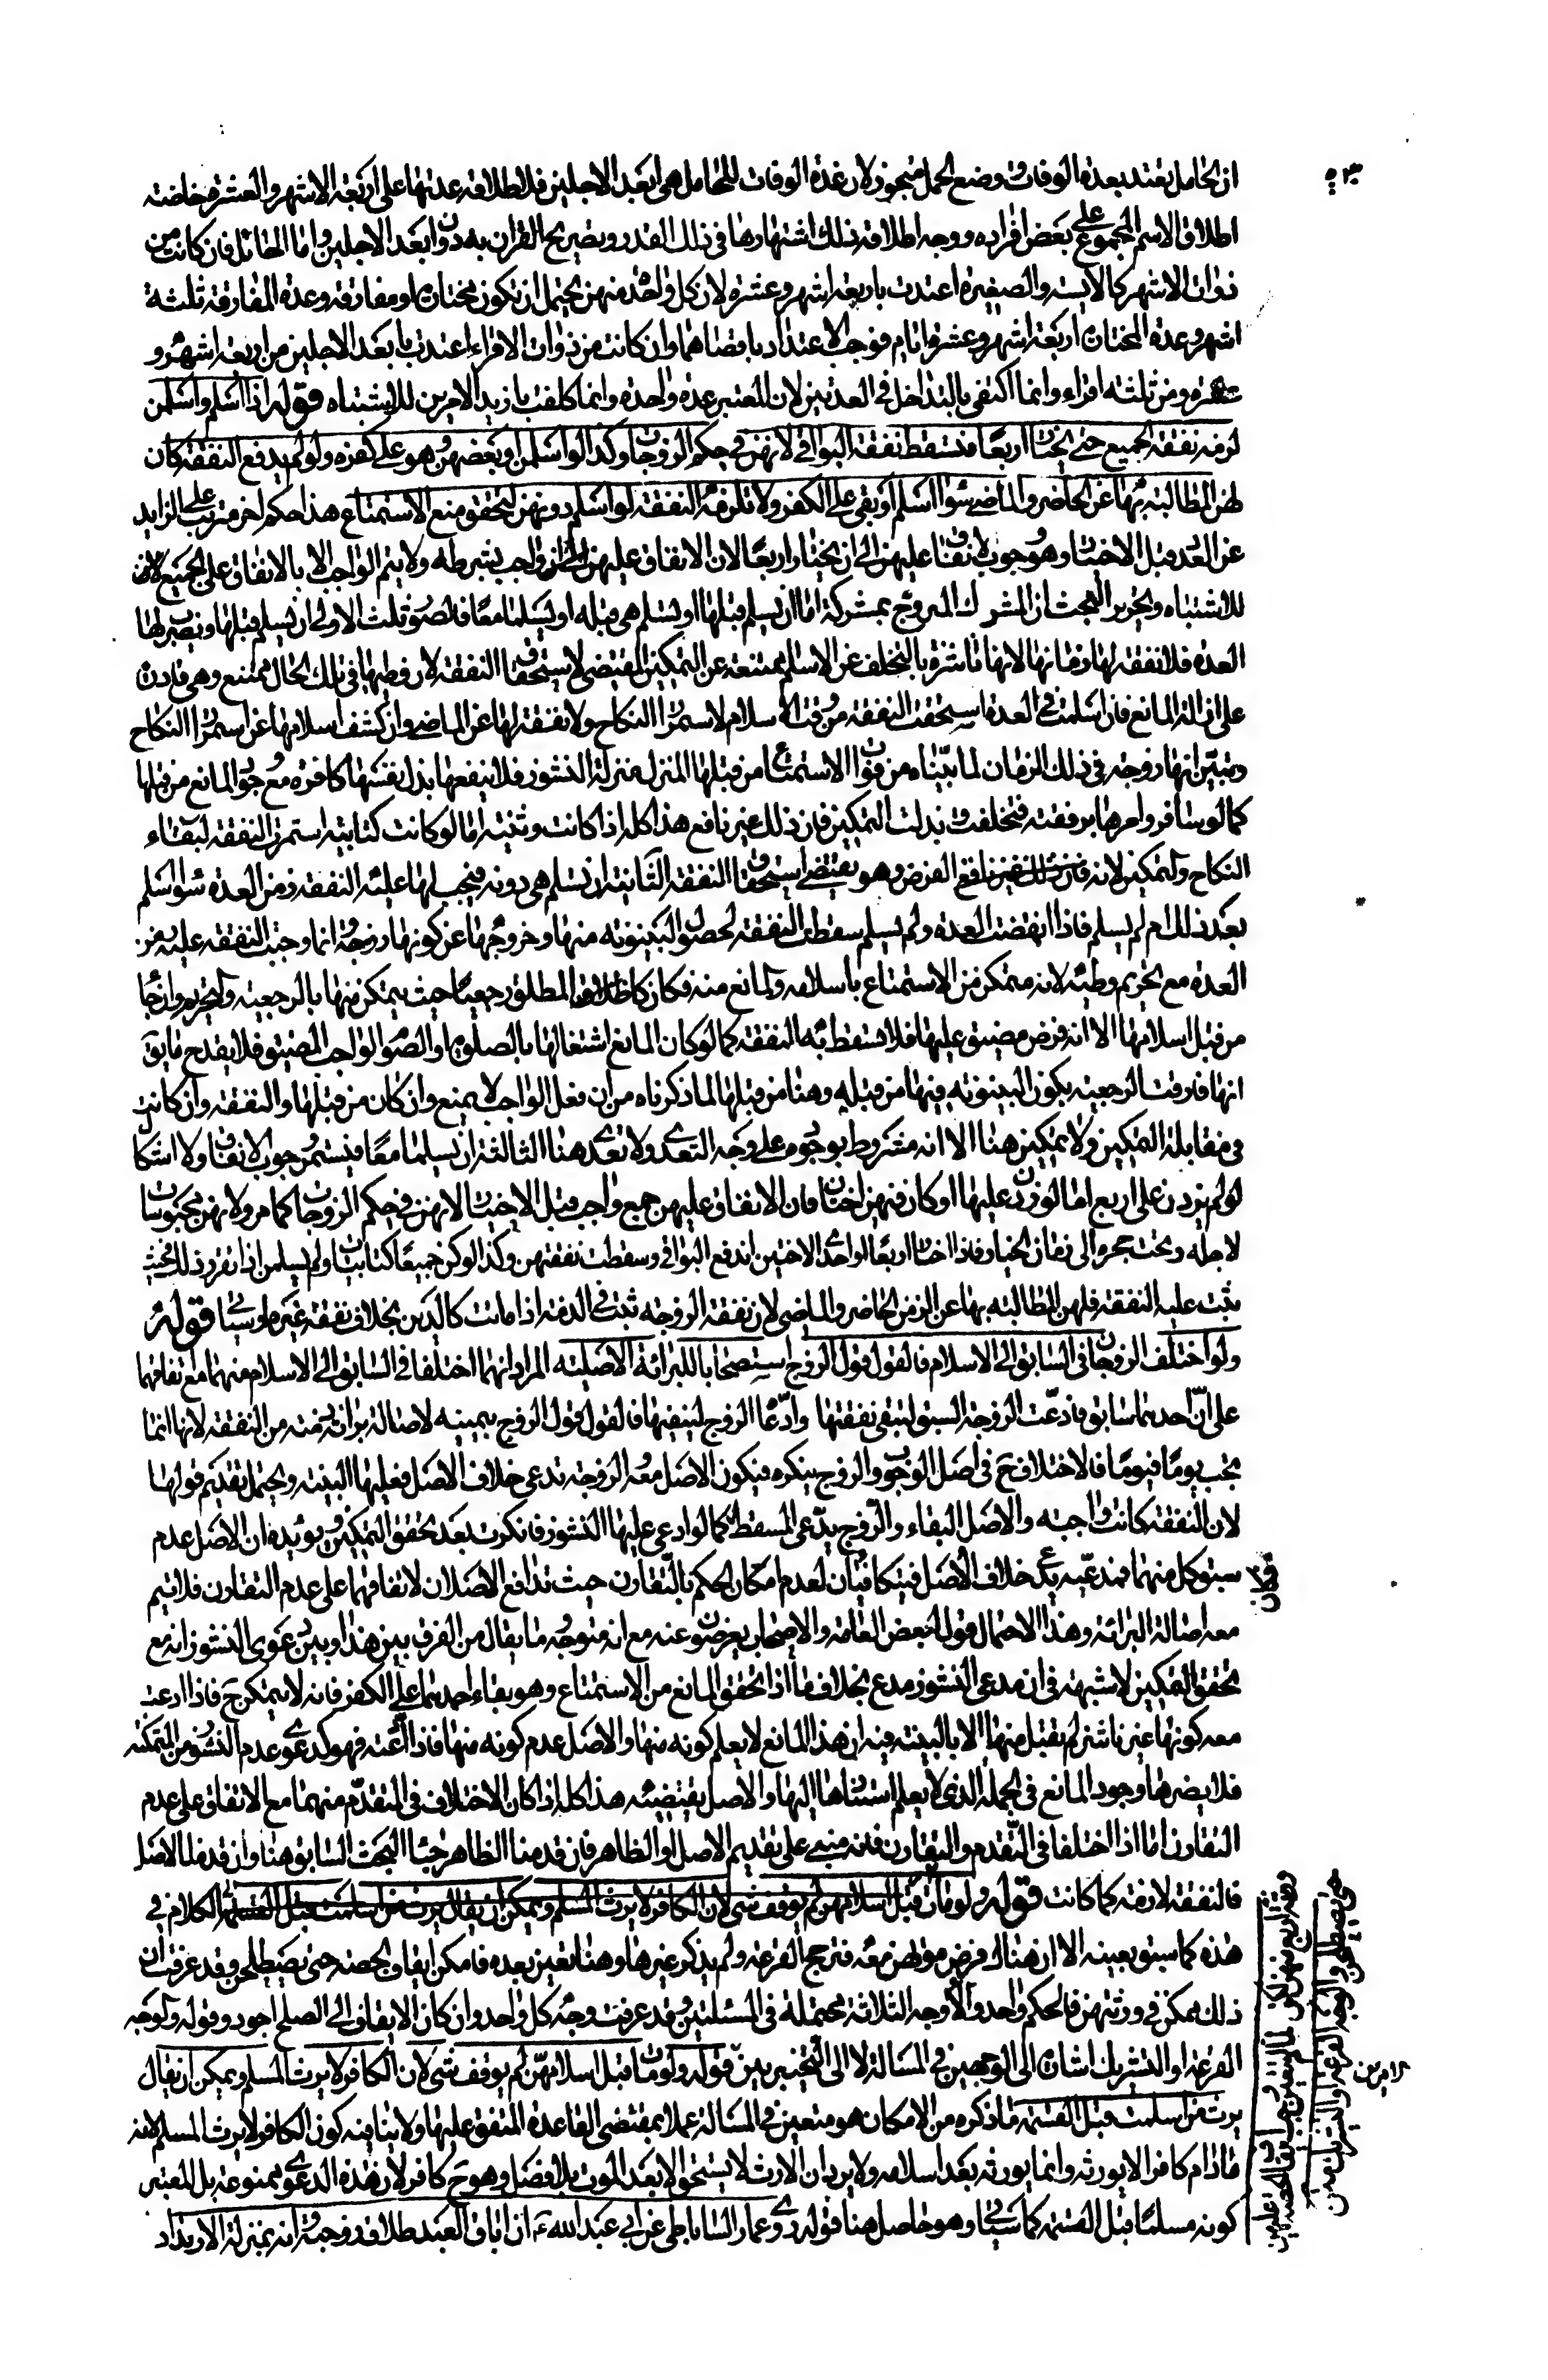 ان الحامل يعتد بعدة الوفات ووضع الحمل متجوز لان عدة الوفات للحامل هى ابعد الاجلين فلاطلاقه عدتها على اربعة الاشهر والعشرة خاصته
اطلاق الاسم المجموع على بعض افراده ووجه اطلاقه ذلك اشتهارها فى ذلك القدر وتصريح القران به دون ابعد الاجلين واما الحائل فان كانت من
ذوات الاشهر كالايسه والصغيرة اعتدت باربعة اشهر وعشرة لان كل واحدة منهن يحتمل ان تكون مختارة او مفارقه وعدة المفارقه ثلثة
اشهر وعدة المختارة اربعة اشهر وعشرة ايام فوجب الاعتداد باقصاهما وان كانت من ذوات الاقراء اعتدت بابعد الاجلين من اربعة اشهر و
عشرة ومن ثلثه اقراء وانما اكتفى بالتداخل فى العدتين لان المعتبر عدة واحدة وانما كلفت بازيد الامرين للاشتباه قوله اذا اسلم واسلمن
لزمه نفقة الجميع حتى يختار اربعا فتسقط نفقة البواقى لانهن فى حكم الزوجات وكذا لو اسلمن او بعضهن وهو على كفره ولو لم يدفع النفقه كان
لهن المطالبة بها عن الحاضر والماضى سواء اسلم او بقى على الكفر ولا تلزمه النفقه لو اسلم دونهن لتحقق منع الاستمتاع هذا حكم اخر مترتب على الزايد
عن العدد قبل الاختيار وهو وجوب الانفاق عليهن الى ان يختار اربعا لان الانفاق عليهن واجب بشرطه ولا يتم الواجب الا بالانفاق على الجميع
للاشتباه وتحرير البحث ان المشرك المتزوج بمشركة اما ان يسلم قبلها او تسلم هى قبله او يسلما معا فالصور ثلث الاولى ان يسلم قبلها ويصبر لها
العدة فلا نفقة لها زمانها لانها ناشزة بالتخلف عن الاسلام ممتنعة عن التمكين المقتضى لاستحقاق النفقه لان وطيها فى تلك الحال ممتنع وهى قادرة
على ازالة المانع فان اسلمت فى العدة استحقت النفقه من وقت الاسلام لاستمرار النكاح ولا نفقة لها عن الماضى وان كشف اسلامها عن استمرار النكاح
وتبين انها زوجه فى ذلك الزمان لما بيناه من فوات الاستمتاع من قبلها المنزل منزلة النشوز فلا ينفعها بذل نفسها كافرة مع وجود المانع من قبلها
كما لو سافر وامرها برفقته فتخلفت وبذلت التمكين فان ذلك غير نافع هذا كله اذا كانت وثنية اما لو كانت كتابية استمرت النفقه لبقاء
النكاح والتمكين لانه الفرض وهو يقتضى استحقاق النفقه الثانية ان تسلم هى دونه فيجب لها عليه النفقه زمن العدة سواء اسلم
بعد ذلك ام لم يسلم فاذا انقضت العدة ولم يسلم سقطت النفقه لحصول البينونه منها وخروجها عن كونها زوجة وانما وجبت النفقه عليه زمن
العدة مع تحريم وطئه لانه متمكن من الاستمتاع باسلامه والمانع منه فكان كالمطلق رجعيا حيث يتمكن منها بالرجعية والتحريم وان جا
من قبل اسلامها الا انه فرض مضيق عليها فلا تسقط به النفقه كما لو كان المانع اشتغالها بالصلوة او الصوم الواجب المضيق فلا يقدح ما يق
انها فارقت الرجعية بكون البينونه فيها من قبله وهنا من قبلها لما ذكرناه من ان فعل الواجب لا يمنع وان كان من قبلها والنفقه وان كانت
فى مقابلة التمكين ولا تمكين هنا الا انه مشروط بوجوده على وجه التعدى ولا تعدى هنا الثالثة ان يسلما معا فيستمر وجوب الانفاق ولا اشكال
لو لم يزدن على اربع اما لو زدن عليها او كان فيهن اختان فان الانفاق عليهن جمع واجب قبل الاختيار لانهن فى حكم الزوجات كما مر ولانهن محبوسات
لاجله وتحت حجره الى زمان الخيار فاذا اختار اربعا او احدى الاختين اندفع البواقى وسقطت نفقتهن وكذا لو كن جميعا كتابيات ولم يسلمن اذا تقرر ذلك فحيث
يثبت عليه النفقه فلهن المطالبة بها عن الزمن الحاضر والماضى لان نفقة الزوجه تثبت فى الذمه اذا مانت كالدين بخلاف نفقة غيرها وسياتى قوله
ولو اختلف الزوجان فى السابق الى الاسلام فالقول قول الزوج استصحابا للبرائة الاصلية المراد انهما اختلفا فى السابق الى الاسلام منهما مع اتفاقهما
على ان احدهما سابق فادعت الزوجة السبق لتبقى نفقتها وادعا الزوج لينفيها فالقول قول الزوج بيمينه لاصالة برائة ذمته من النفقه لانها انما
تجب يوما فيوما فالاختلاف ح فى اصل الوجوب والزوج ينكره فيكون الاصل معه الزوجة تدعى خلاف الاصل فعليها البينه ويحتمل تقديم قولها
لان النفقه كانت واجبه والاصل البقاء والزوج يدعى المسقط كما لو ادعى عليها النشوز فانكرت بعد تحقق التمكين ويؤيده ان الاصل عدم
سبق كل منهما فمدعيه يدعى خلاف الاصل فيتكافيان لعدم امكان الحكم بالتقارن حيث تدافع الاصلان لاتفاقهما على عدم التقارن فلا يتم
معه اصالة البرائة وهذا الاحتمال قول لبعض العامة والاصحاب يعرضون عنه مع انه متوجه ما يقال من الفرق بين هذا وبين دعوى النشوز انه مع
تحقق التمكين لا شبهة فى ان مدعى النشوز مدع بخلاف ما اذا تحقق المانع من الاستمتاع وهو بقاء احدهما على الكفر فانه لا يتمكن ح فاذا ادعت
معه كونها غير ناشز لم تقبل منها الا بالبينه فيه ان هذا المانع لا يعلم كونه منها والاصل عدم كونه منها فاذا ادعته فهو كدعوى عدم النشوز من المتمكنه
فلا يضرها وجود المانع فى الجملة الذى لا يعلم استناها اليها والاصل يقتضيه هذا كله اذا كان الاختلاف فى التقدم منهما مع الاتفاق على عدم
التقارن اما اذا اختلفا فى التقدم والتقارن فانه منبى على تقديم الاصل او الظاهر فان قدمنا الظاهر جا البحث السابق هنا وان قدمنا الاصل
فالنفقه لازمه كما كانت قوله ولو مات قبل اسلامهن لم يوقف شى لان الكافر لا يرث المسلم ويمكن ان يقال يرث من اسلمت قبل القسمه الكلام فى
هذه كما سبق بعينه الا ان هناك فرض موتهن معه فترجح القرعة ولم يذكر غيرها وهنا تعين بعده فامكن ايقاف الحصة حتى يصطلحن وقد عرفت ان
ذلك ممكن فى ورثتهن فالحكم واحد والاوجه الثلاثة محتملة فى المسئلتين وقد عرفت وجه كل واحد وان كان الايقاف الى الصلح اجود وقوله والوجه
القرعة او التشريك اشارة الى الوجهين فى المسالة لا الى التخيير بين قوله ولو مات قبل اسلامهن لم يوقف شى لان الكافر لا يرث المسلم ويمكن ان يقال
يرث من اسلمت قبل القسمه ما ذكره من الامكان هو متعين فى المسالة عملا بمقتضى القاعدة المتفق عليها ولا ينافيه كون الكافر لا يرث المسلم لانه
ما دام كافرا لا يورثه وانما يورثه بعد اسلامه ولا يرد ان الارث لا يستحق الا بعد الموت بلا فصل وهو ح كافر لان هذه الدعوى ممنوعة بل المعتبر
كونه مسلما قبل القسمه كما سياتى وهو حاصل هنا قوله روى عمار الساباطى عن ابى عبد الله ع ان اباق العبد طلاق زوجته وانه بمنزلة الارتداد